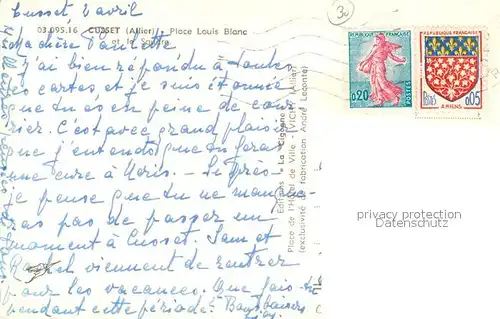 Cusset 2 avril
03.095.16 CUSSET (Allier) Place Louis Blanc
et le Square
Ma chère Paulette
J'ai bien répondu à toutes
les cartes, et je suis étonnée
que tu as en peine de cour
rier. C'est avec grand plaisir
que j'entends que tu feras
une cure à Néris - 
je pense que tu ne manque
ras pas de passer un
moment à Cusset. Sam et
Rachel viennent de rentrer
pour les vacances. Que fais-tu
pendant cette période? Bons baisers
Editions "La Cigogne"
Place de l'Hôtel de Ville - VICHY (Allier)
(exclusivité de fabrication André Leconte)
REPUBLIQUE FRANÇAISE
0,20
POSTES
REPUBLIQUE FRANÇAISE
Postes
0,05
AMIENS
30
privacy protection
Datenschutz